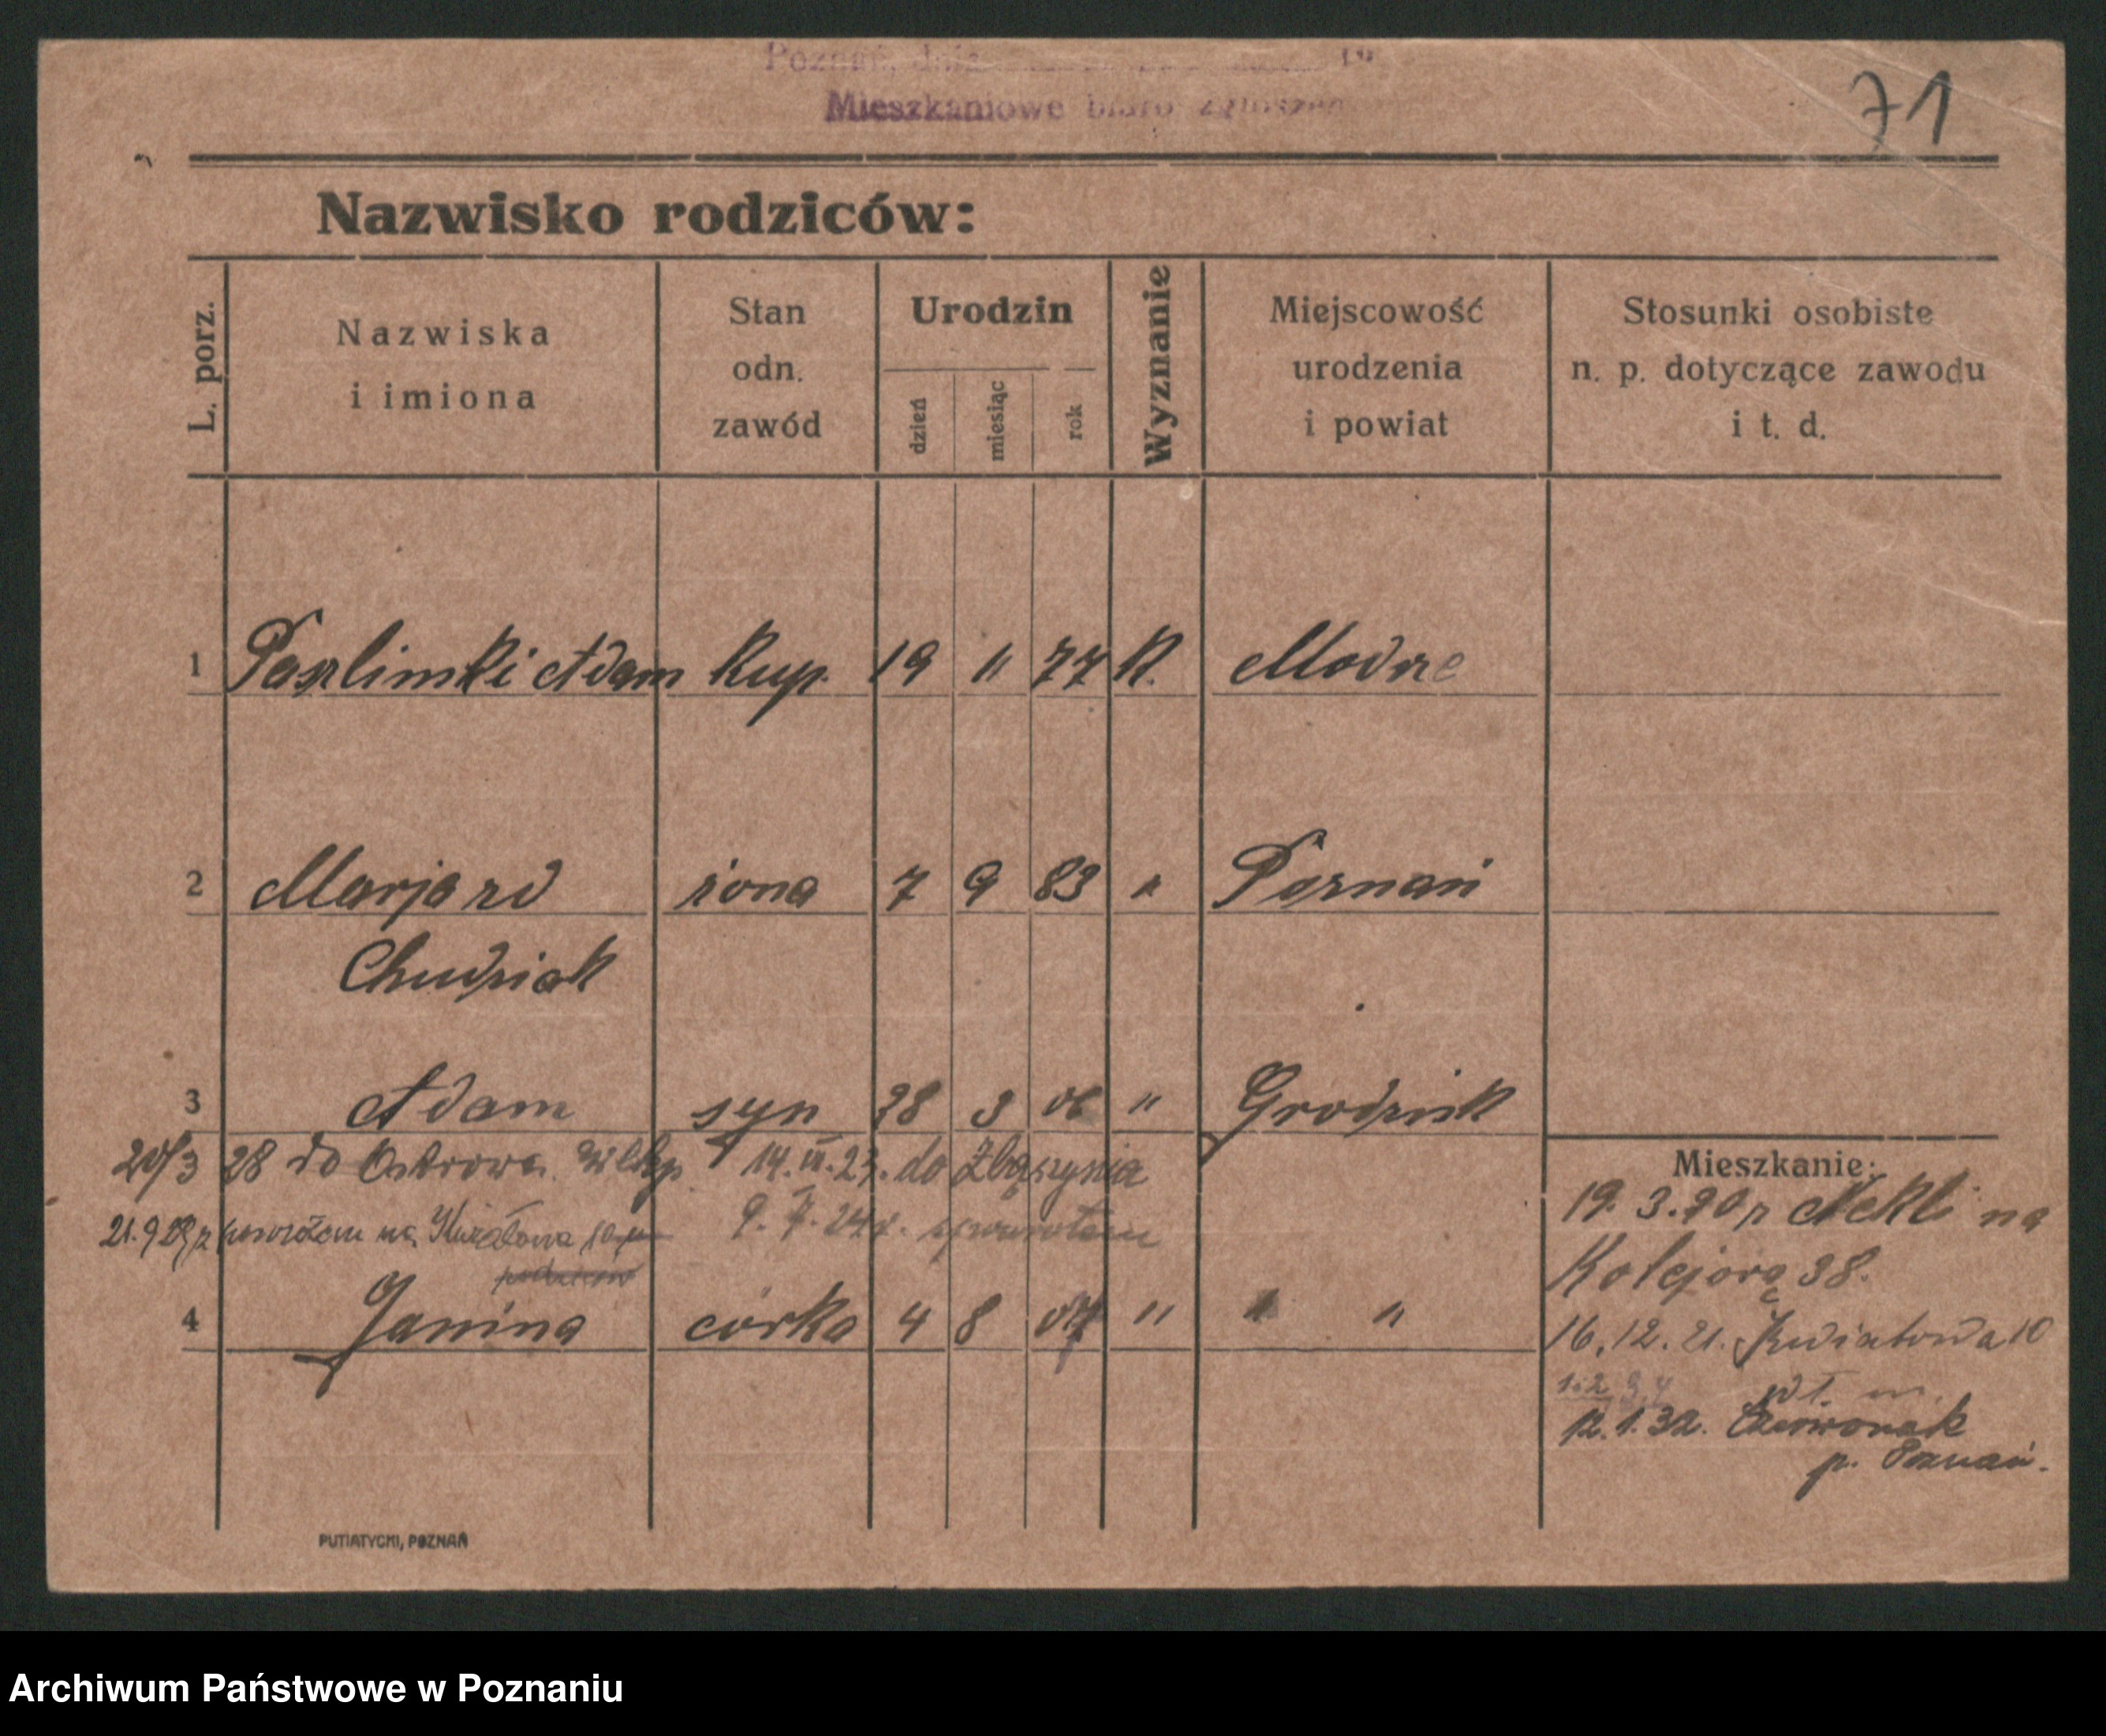 Poznań, dnia
Mieszkaniowe biuro zgłoszeń
71
Nazwisko rodziców:
L. porz.
Nazwiska
i imiona
Stan
odn.
zawód
Urodzin
dzień
miesiąc
rok
Wyznanie
Miejscowość
urodzenia
i powiat
Stosunki osobiste
n. p. dotyczące zawodu
i t. d.
1 Adam kup. 19 11 77 K. Modrze
2 Marja zd żona 7 9 83 " Poznań
Chudziak
3 Adam syn 28 3 06 " Grodzisk
20/3 28 do Ostrowa Wlkp. 14.II.23. do Zbąszynia
21.9 28 z powrotem na 9. 24r. spowrotem
4 Janina córka 4 8 07 " " "
Mieszkanie:
19.3.20 z Nekli na
Kolejorą 38.
16.12.21. Kwiatowa 10
1 i 2 3, 4 wł. m.
12.1.32. Czerwonak
p. Poznań.
PUTIATYCKI, POZNAŃ
Archiwum Państwowe w Poznaniu